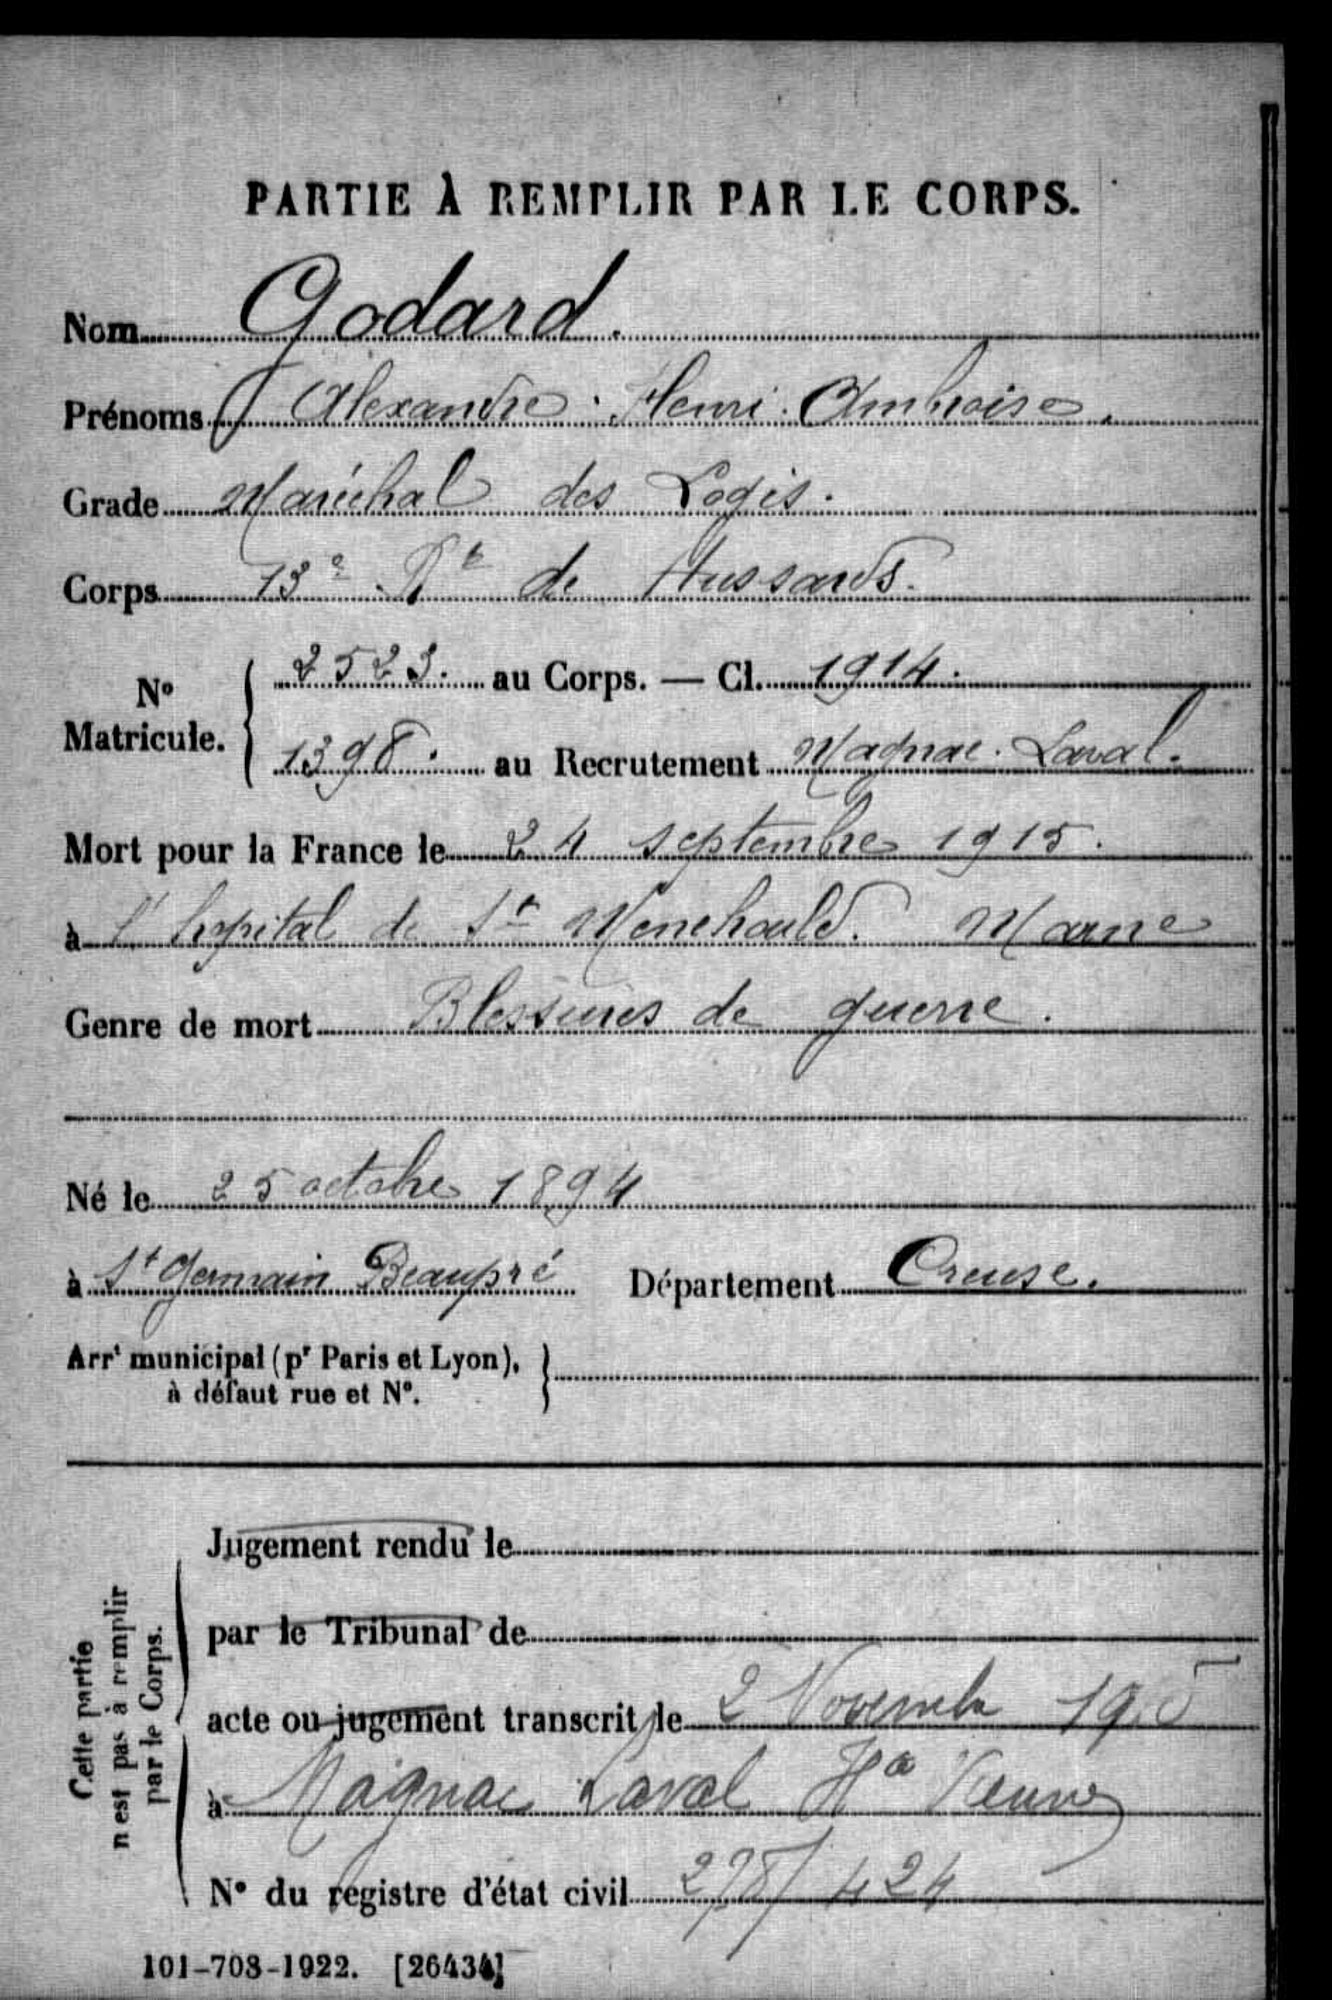 PARTIE À REMPLIR PAR LE CORPS.
Nom Godard.
Prénoms Alexandre. Henri. Ambroise.
Grade Maréchal des Logis.
Corps 13e Rt de Hussards.
No Matricule. { 2523. au Corps. — Cl. 1914.
1398. au Recrutement Magnac. Laval.
Mort pour la France le 24 septembre 1915.
à l'hopital de Ste Menehould. Marne
Genre de mort Blessures de guerre.
Né le 25 octobre 1894
à St Germain Beaupré Département Creuse.
Arrt municipal (pr Paris et Lyon),
à défaut rue et No.
Cette partie n'est pas à remplir par le Corps.
Jugement rendu le
par le Tribunal de
acte ou jugement transcrit le 2 Novembre
à Magnac Laval Hte Vienne
No du registre d'état civil 278/424
101-708-1922. [26434]